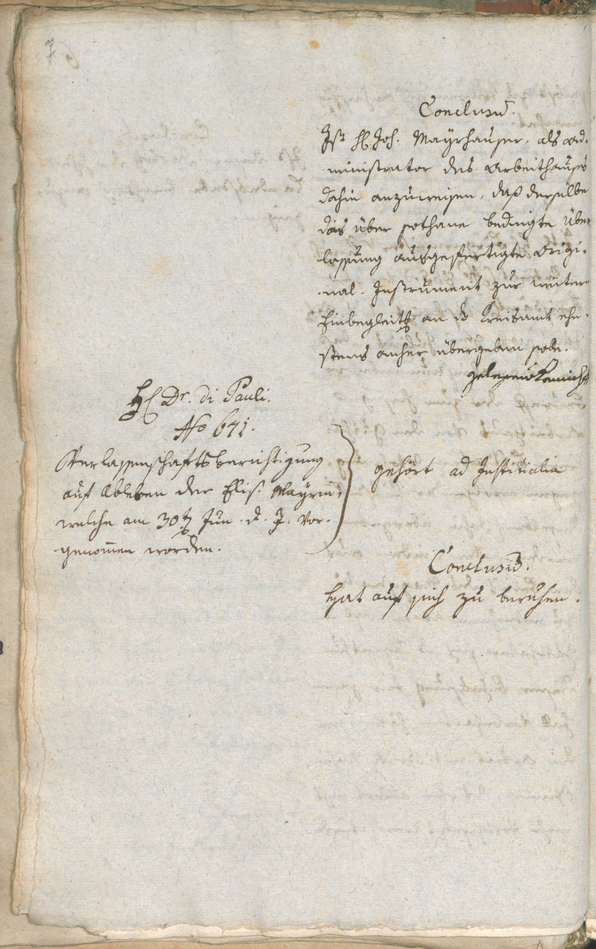 Conclusum.
Ist H. Joh. Mayrhauser, als Ad-
ministrator des Arbeithauses
dahin anzuweisen, daß derselbe
das über sothane bedingte Über-
lassung ausgefertigte Origi-
nal-Instrument zur weitern
Einbegleitg an d Kreisamt ehe-
stens anher übergeben solle.
H. Dr. di Pauli.
No 641.
Verlassenschaftsberichtigung
auf Ableben der Elis. Mayrin,
welche am 30t Jun. d. J. vor-
genommen worden.
gehört ad Justitialia
Conclusum.
Hat auf sich zu beruhen.